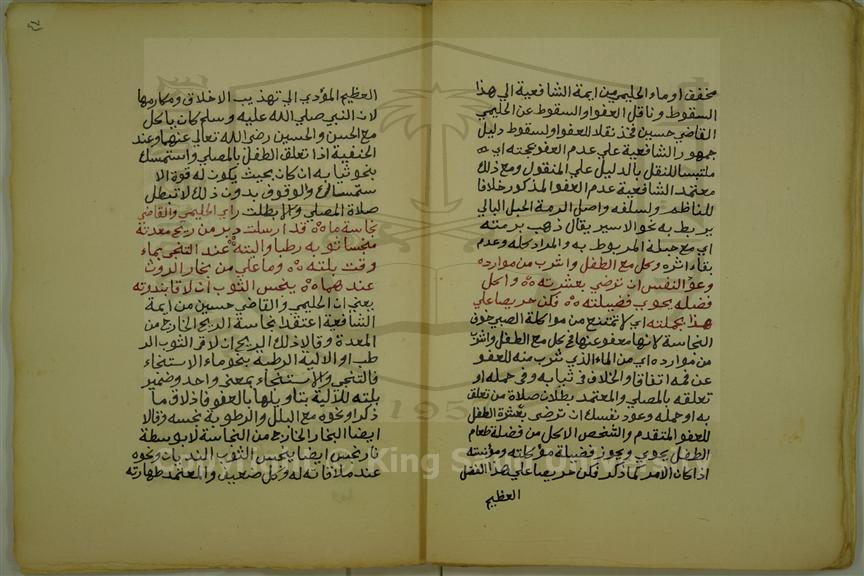 مخفف او ماء الحليمي من ايمة الشافعية الي هذا
السقوط وناقل العفو او السقوط عن الحليمي
القاضي حسين فخذ نقلا للعفو اولسقوط دليل
جمهور الشافعية علي عدم العفو بحجته اي
ملتبسا للنقل بالدليل علي المنقول ومع ذلك
معتمد الشافعية عدم العفو المذكور خلافا
للناظم وسلفه واصل الرمة الحبل البالي
يربط به نحو الاسير يقال ذهب برمته
اي مع حبله المربوط به والمراد كله وعدم
بقاء اثره وكل مع الطفل واشرب من موارده
وعوّ النفس ان ترضي بعشرته واكل
فضله يحوي فضيلته فكن حريصا علي
هذا بجملته اي لا تمتنع من مواكلة الصبي خوف
النجاسة لانها معفو عنها فكل مع الطفل واشرب
من موارده اي من الماء الذي شرب منه للعفو
عن فمه اتفاقا والخلاف في ثيابه وفي حمله او
تعلقه بالمصلي والمعتمد بطلان صلاة من تعلق
به او حمله وعود نفسك ان ترضي بعشرة الطفل
للعفو المتقدم والشخص الاكل من فضلة طعام
الطفل يحوي ويحوز فضيلة مؤكلته ومؤنسته
اذا كان الامر كما ذكر فكن حريصا علي هذا الفضل
العظيم
العظيم المؤدي الي تهذيب الاخلاق ومكارمها
لان النبي صلي الله عليه وسلم كان ياكل
مع الحسن والحسين رضي الله تعالي عنهما وعند
الحنفية اذا تعلق الطفل بالمصلي واستمسك
بنحو ثيابه ان كان بحيث يكون له قوة الا
ستمساك والوقوف بدون ذلك لا تبطل
صلاة المصلي والا بطلت راي الحليمي والقاضي
نجاسة ما قد ارسلت دبر من ريح معدته
منجسا ثوبه رطبا واليته عند التنجي بماء
وقت بلته وما علي من بخار الروث
عندهما ينجس الثوب ان لاقا بندوته
يعني ان الحليمي والقاضي حسين من ايمة
الشافعية اعتقدا نجاسة الريح الخارج من
المعدة وقالا ذلك الريح ان لاقي الثوب الر
طب او الالية الرطبة بنحو ماء الاستنجاء
فالتنجي والاستنجاء بمعني واحد وضمير
بلته للالية بتاويلها بالعفو فاذ لاقي ما
ذكر او نحوه مع البلل والرطوبة نجسه وقالا
ايضا البخار الخارج من النجاسة لا بوسطة
نار نجس ايضا ينجس الثوب الندي ونحوه
عند ملاقاته له وكل ضعيف والمعتمد طهارته
King Saud University